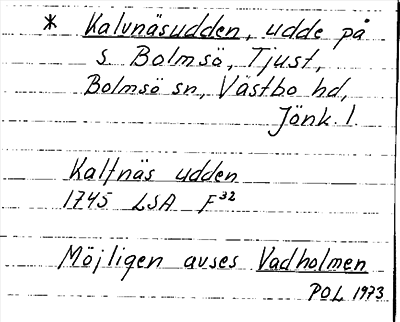 * Kalvnäsudden, udde på
s. Bolmsö, Tjust,
Bolmsö sn, Västbo hd,
Jönk. l.
Kalfnäs udden
1745 LSA F³²
Möjligen avses Vadholmen
POL 1973